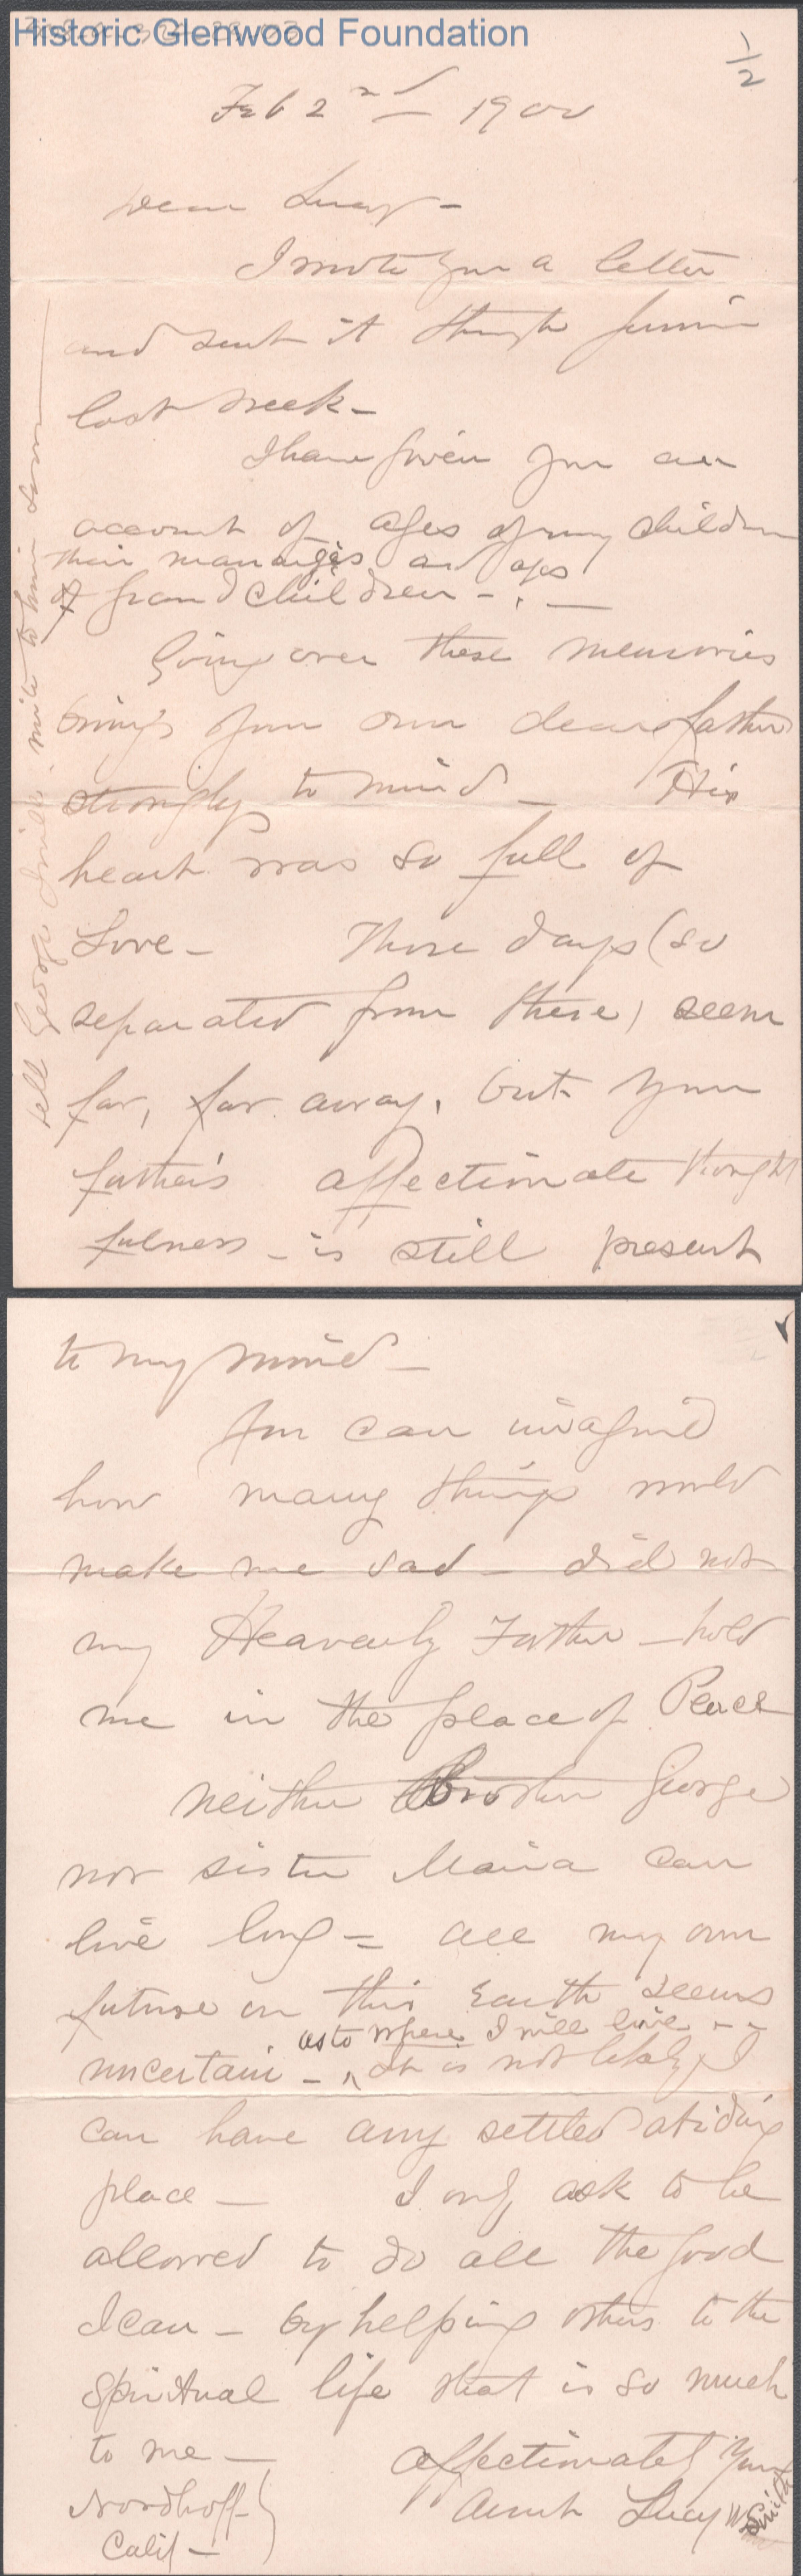 Historic Glenwood Foundation
1/2
Feb 2nd 1900
Dear Lucy -
I wrote you a letter
and sent it through Junior
last week -
I have given you an
account of ages of my children
their marriages and ages
of grandchildren -
Going over these memories
brings your own dear father
strongly to mind - His
heart was so full of
Love - Those days (so
separated from these) seem
far, far away, but your
father's affectionate thought
fulness - is still present
tell George write to
to my mind -
You can imagine
how many things would
make me sad - did not
my Heavenly Father - hold
me in the place of Peace
neither Brother George
nor sister Maria can
live long = all my own
future on this Earth seems
as to where I will live - -
uncertain - ^ It is not likely I
can have any settled abiding
place - I only ask to be
allowed to do all the good
I can - by helping others to the
Spiritual life that is so much
to me -
affectionately Yours
Aunt Lucy W Smith
Nordhoff -
Calif -